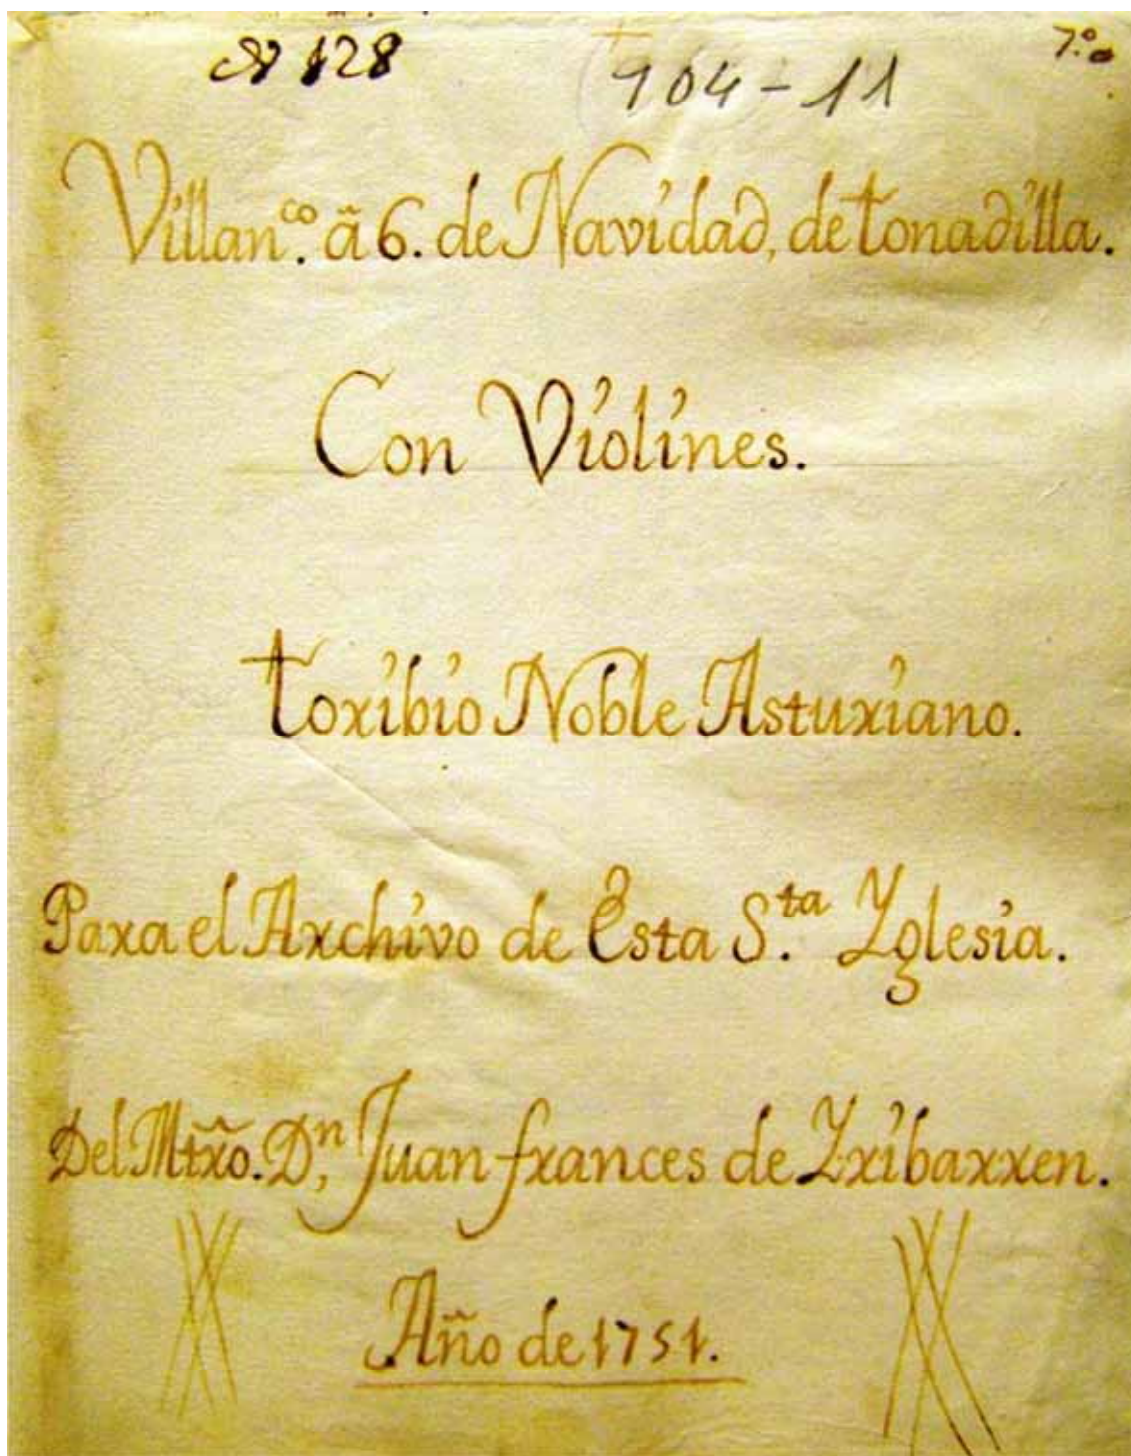 N 128
904-11
7.º
Villan.ᶜᵒ â 6. de Navidad, de tonadilla.
Con Violines.
toribio Noble Asturiano.
Para el Archivo de Esta S.ᵗᵃ Yglesia.
Del Mtr̃o. D.ⁿ Juan frances de Yribarren.
Año de 1751.